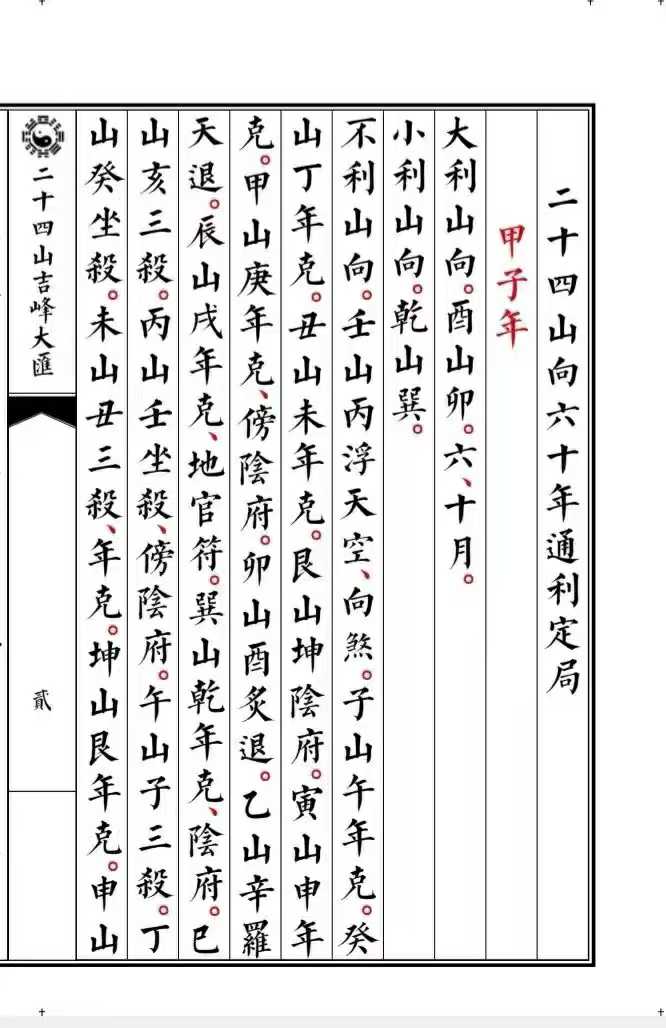 二十四山向六十年通利定局
甲子年
大利山向。酉山卯。六、十月。
小利山向。乾山巽。
不利山向。壬山丙浮天空、向煞。子山午年克。癸
山丁年克。丑山未年克。艮山坤陰府。寅山申年
克。甲山庚年克、傍陰府。卯山酉炙退。乙山辛羅
天退。辰山戌年克、地官符。巽山乾年克、陰府。巳
山亥三殺。丙山壬坐殺、傍陰府。午山子三殺。丁
山癸坐殺。未山丑三殺、年克。坤山艮年克。申山
二十四山吉峰大匯
貳